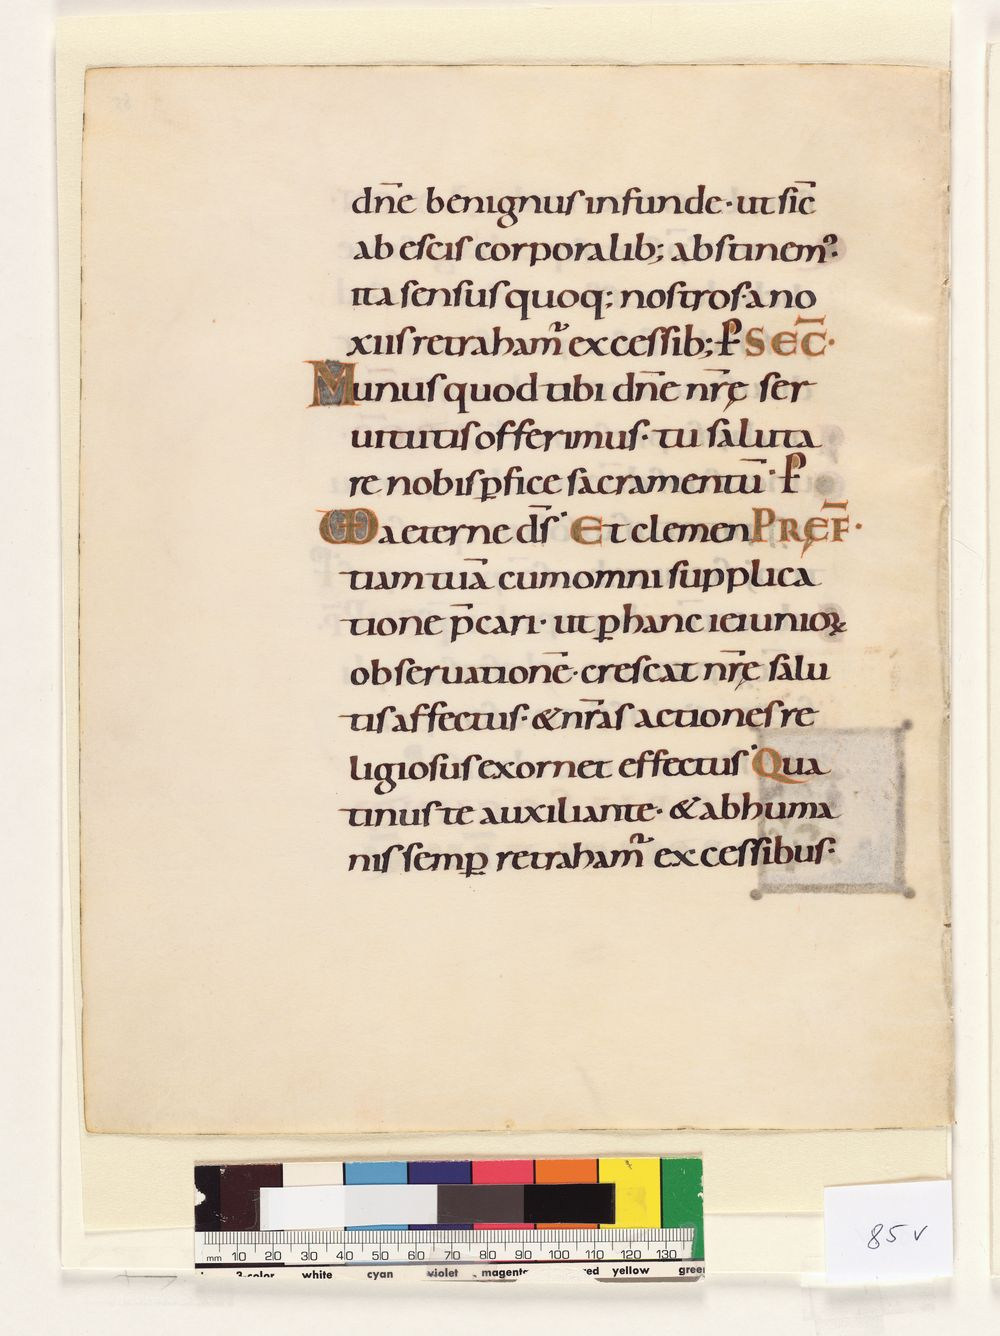 dn̄e benignus infunde· ut sic̄
ab escis corporalib; abstinem᷒
ita sensus quoq; nostros· a no
xiis retraham᷒ excessib; ꝑ SEC̄·
Munus quod tibi dn̄e nr̄ę ser
uitutis offerimus· tu saluta
re nobis ꝑfice sacramentū· ꝑ
VD aeterne ds̄· Et clemen PRĘF̄·
tiam tuā cum omni supplica
tione p̄cari· ut ꝑ hanc ieiunioꝝ
obseruationē· crescat nr̄ę salu
tis affectus· & nr̄as actiones re
ligiosus exornet effectus· Qua
tinus te auxiliante· & ab huma
nis semꝑ retraham᷒ excessibus·
mm 10 20 30 40 50 60 70 80 90 100 110 120 130
3-color white cyan violet magenta red yellow green
85 v